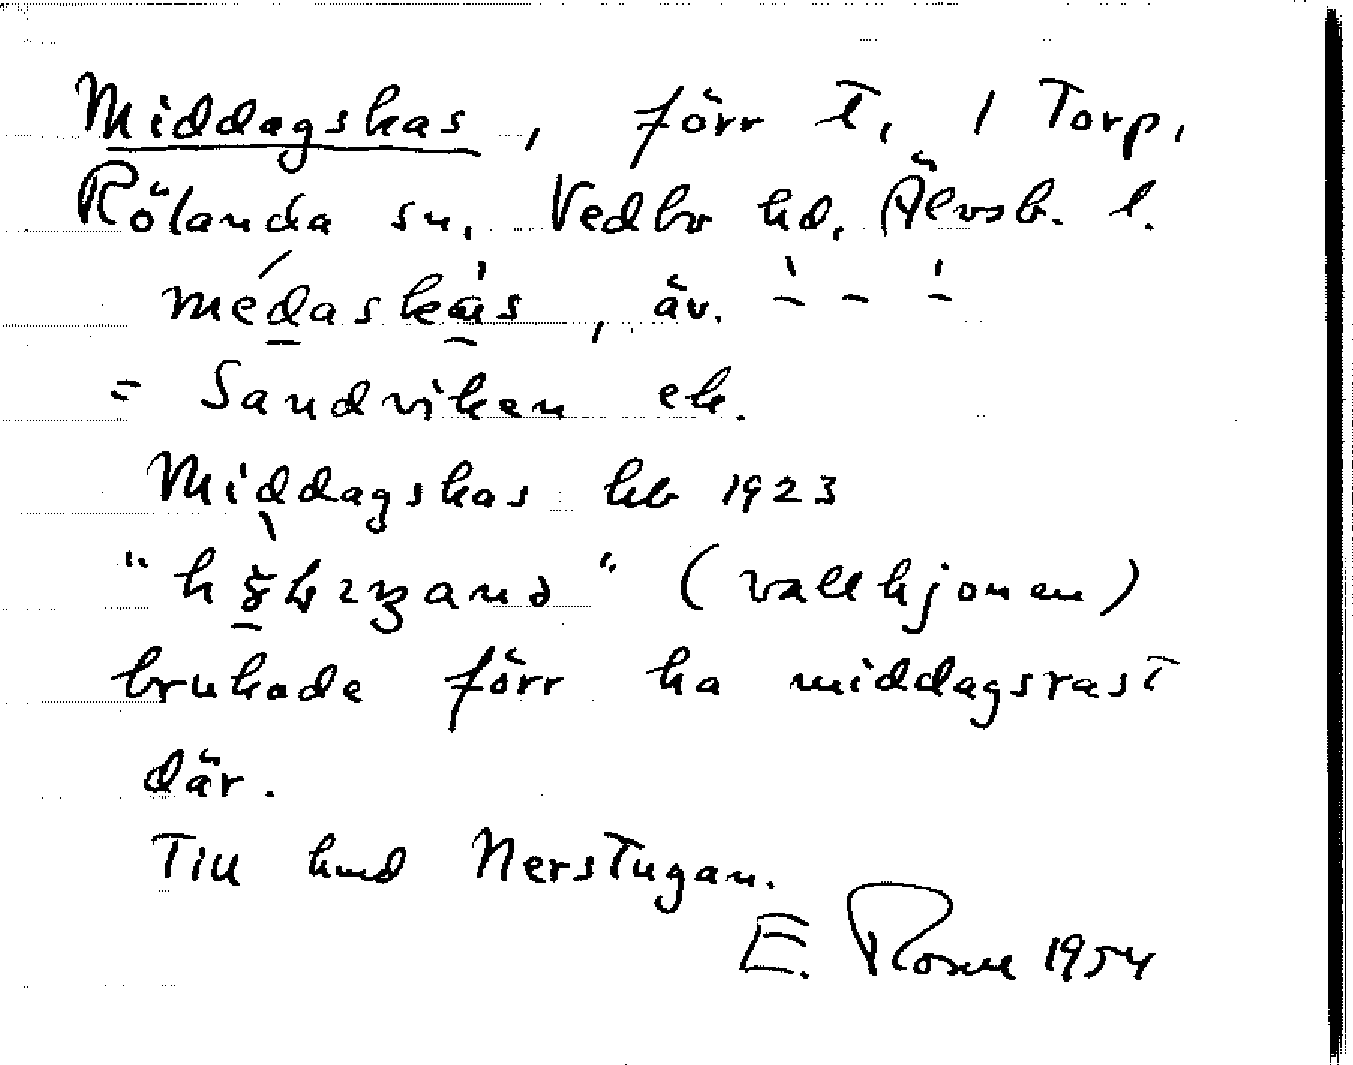 Middagskas, förr t. 1 Torp,
Rölanda sn, Vedbo hd, Älvsb. l.
medaskas, äv.
= Sandviken ek.
Middagskas kb 1923
" " (vallhjonen)
brukade förr ha middagsrast
där.
Till hmd Nerstugan.
E. Rosell 1954